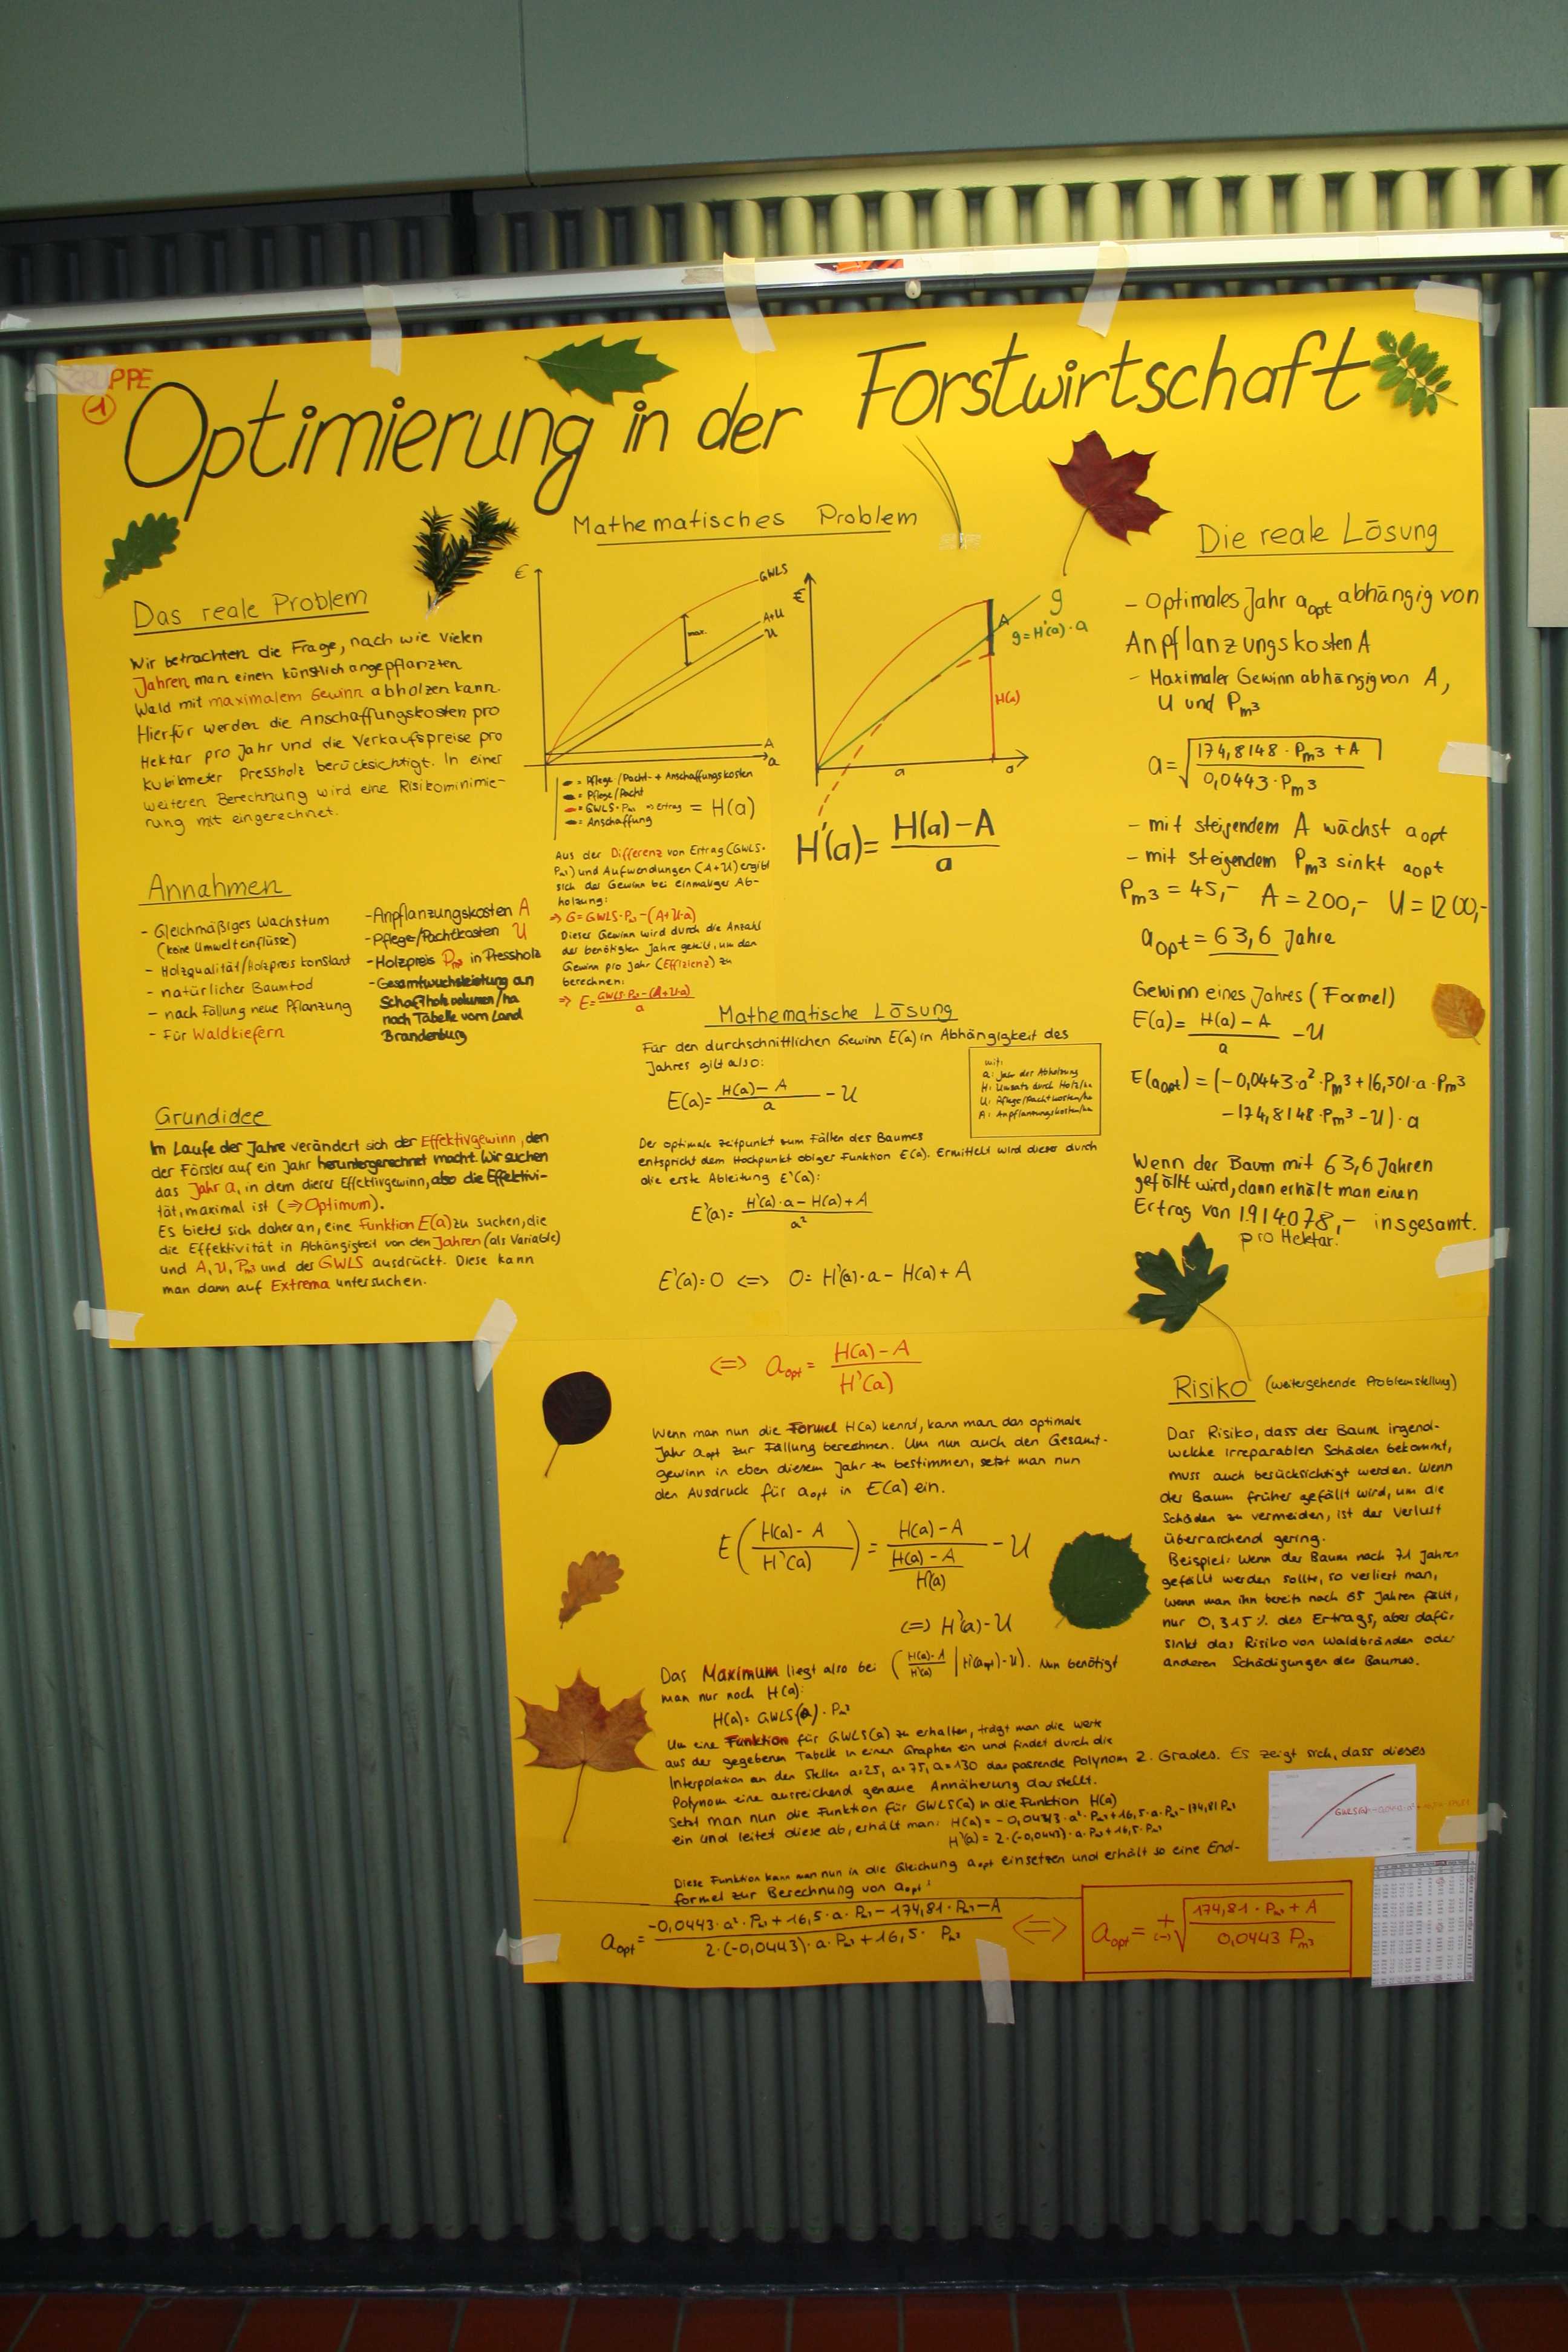 GRUPPE
1
Optimierung in der Forstwirtschaft
Das reale Problem
Wir betrachten die Frage, nach wie vielen
Jahren man einen künstlich angepflanzten
Wald mit maximalem Gewinn abholzen kann.
Hierfür werden die Anschaffungskosten pro
Hektar pro Jahr und die Verkaufspreise pro
Kubikmeter Pressholz berücksichtigt. In einer
weiteren Berechnung wird eine Risikominimie-
rung mit eingerechnet.
Annahmen
- Gleichmäßiges Wachstum
(keine Umwelteinflüsse)
- Holzqualität/Holzpreis konstant
- natürlicher Baumtod
- nach Fällung neue Pflanzung
- Für Waldkiefern
-Anpflanzungskosten A
-Pflege-/Pachtkosten U
-Holzpreis Pm³ in Pressholz
-Gesamtwuchsleistung an
Schaftholzvolumen/ha
nach Tabelle vom Land
Brandenburg
Grundidee
Im Laufe der Jahre verändert sich der Effektivgewinn, den
der Förster auf ein Jahr heruntergerechnet macht. Wir suchen
das Jahr a, in dem dieser Effektivgewinn, also die Effektivi-
tät, maximal ist (⇒ Optimum).
Es bietet sich daher an, eine Funktion E(a) zu suchen, die
die Effektivität in Abhängigkeit von den Jahren (als Variable)
und A, U, Pm³ und der GWLS ausdrückt. Diese kann
man dann auf Extrema untersuchen.
Mathematisches Problem
€
GWLS
A+U
U
max.
A
a
= Pflege/Pacht- + Anschaffungskosten
= Pflege/Pacht
= GWLS·Pm³ ⇒ Ertrag = H(a)
= Anschaffung
€
g
g=H'(a)·a
A
H(a)
a
a
H'(a)= (H(a)-A)/a
Aus der Differenz von Ertrag (GWLS·
Pm³) und Aufwendungen (A+U) ergibt
sich der Gewinn bei einmaliger Ab-
holzung:
⇒ G=GWLS·Pm³-(A+U·a)
Dieser Gewinn wird durch die Anzahl
der benötigten Jahre geteilt, um den
Gewinn pro Jahr (Effizienz) zu
berechnen:
⇒ E= (GWLS·Pm³-(A+U·a))/a
Mathematische Lösung
Für den durchschnittlichen Gewinn E(a) in Abhängigkeit des
Jahres gilt also:
E(a)= (H(a)-A)/a - U
mit:
a: Jahr der Abholzung
H: Umsatz durch Holz/ha
U: Pflege/Pachtkosten/ha
A: Anpflanzungskosten/ha
Der optimale Zeitpunkt zum Fällen des Baumes
entspricht dem Hochpunkt obiger Funktion E(a). Ermittelt wird dieser durch
die erste Ableitung E'(a):
E'(a)= (H'(a)·a-H(a)+A)/a²
E'(a)=0 <=> 0=H'(a)·a-H(a)+A
<=> aopt= (H(a)-A)/H'(a)
Wenn man nun die Formel H(a) kennt, kann man das optimale
Jahr aopt zur Fällung berechnen. Um nun auch den Gesamt-
gewinn in eben diesem Jahr zu bestimmen, setzt man nun
den Ausdruck für aopt in E(a) ein.
E((H(a)-A)/H'(a)) = (H(a)-A)/((H(a)-A)/H'(a)) - U
<=> H'(a)-U
Das Maximum liegt also bei ((H(a)-A)/H'(a) | H'(aopt)-U). Nun benötigt
man nur noch H(a):
H(a)= GWLS(a)·Pm³
Um eine Funktion für GWLS(a) zu erhalten, trägt man die Werte
aus der gegebenen Tabelle in einen Graphen ein und findet durch die
Interpolation an den Stellen a=25, a=75, a=130 das passende Polynom 2. Grades. Es zeigt sich, dass dieses
Polynom eine ausreichend genaue Annäherung darstellt.
Setzt man nun die Funktion für GWLS(a) in die Funktion H(a)
ein und leitet diese ab, erhält man: H(a)= -0,0443·a²·Pm³+16,5·a·Pm³-174,81 Pm³
H'(a)= 2·(-0,0443)·a·Pm³+16,5·Pm³
Diese Funktion kann man nun in die Gleichung aopt einsetzen und erhält so eine End-
formel zur Berechnung von aopt:
aopt= (-0,0443·a²·Pm³+16,5·a·Pm³-174,81·Pm³-A)/(2·(-0,0443)·a·Pm³+16,5·Pm³) <=> aopt= +(-)√((174,81·Pm³+A)/(0,0443 Pm³))
Die reale Lösung
- Optimales Jahr aopt abhängig von
Anpflanzungskosten A
- Maximaler Gewinn abhängig von A,
U und Pm³
a=√((174,8148·Pm³+A)/(0,0443·Pm³))
- mit steigendem A wächst aopt
- mit steigendem Pm³ sinkt aopt
Pm³=45,- A=200,- U=1200,-
aopt=63,6 Jahre
Gewinn eines Jahres (Formel)
E(a)= (H(a)-A)/a - U
E(aopt)=(-0,0443·a²·Pm³+16,501·a·Pm³
-174,8148·Pm³-U)·a
Wenn der Baum mit 63,6 Jahren
gefällt wird, dann erhält man einen
Ertrag von 1.914.078,- insgesamt.
pro Hektar.
Risiko (weitergehende Problemstellung)
Das Risiko, dass der Baum irgend-
welche irreparablen Schäden bekommt,
muss auch berücksichtigt werden. Wenn
der Baum früher gefällt wird, um die
Schäden zu vermeiden, ist der Verlust
überraschend gering.
Beispiel: Wenn der Baum nach 71 Jahren
gefällt werden sollte, so verliert man,
wenn man ihn bereits nach 65 Jahren fällt,
nur 0,315% des Ertrags, aber dafür
sinkt das Risiko von Waldbränden oder
anderen Schädigungen des Baumes.